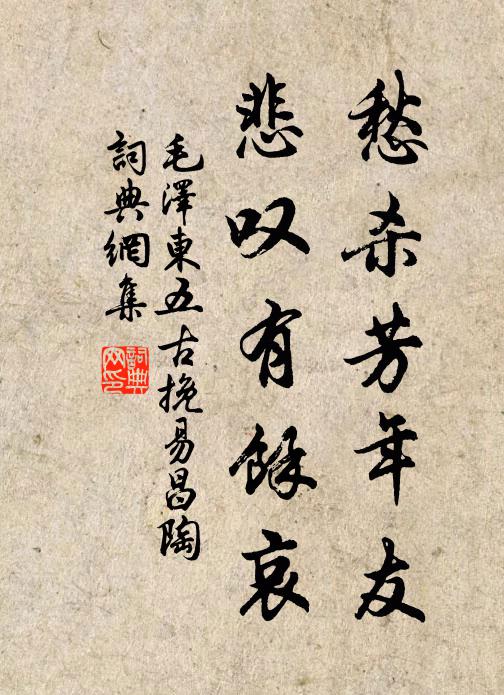 愁杀芳年友
悲叹有餘哀
毛澤東五古挽易昌陶
詞典網集
詞典网印